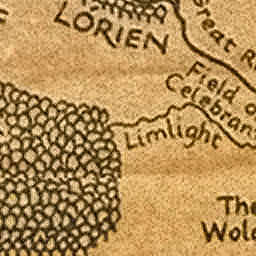 LORIEN
Great R
Field of
Celebran
Limlight
The
Wold